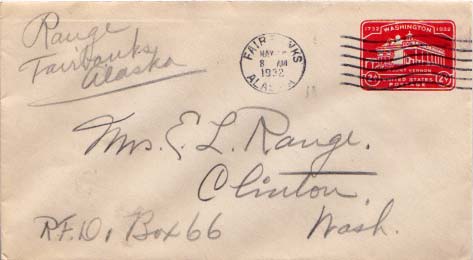 Range
Fairbanks
Alaska
FAIRBANKS
MAY
8 AM
1932
ALASKA
1732 WASHINGTON 1932
MOUNT VERNON
UNITED STATES
POSTAGE
Mrs. E. L. Range.
Clinton.
R.F.D. Box 66
Wash.